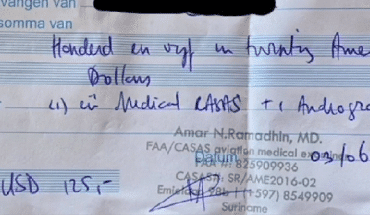 vangen van
somma van
Honderd en vijf en twintig Ame
Dollars
(1) en Medical CASAS + 1 Androgra
Amar N.Ramadhin, MD.
FAA/CASAS aviation medical exam
Datum 03/06
FAA #: 825909936
CASAS#: SR/AME2016-02
(+597) 8549909
Suriname
USD 125,-